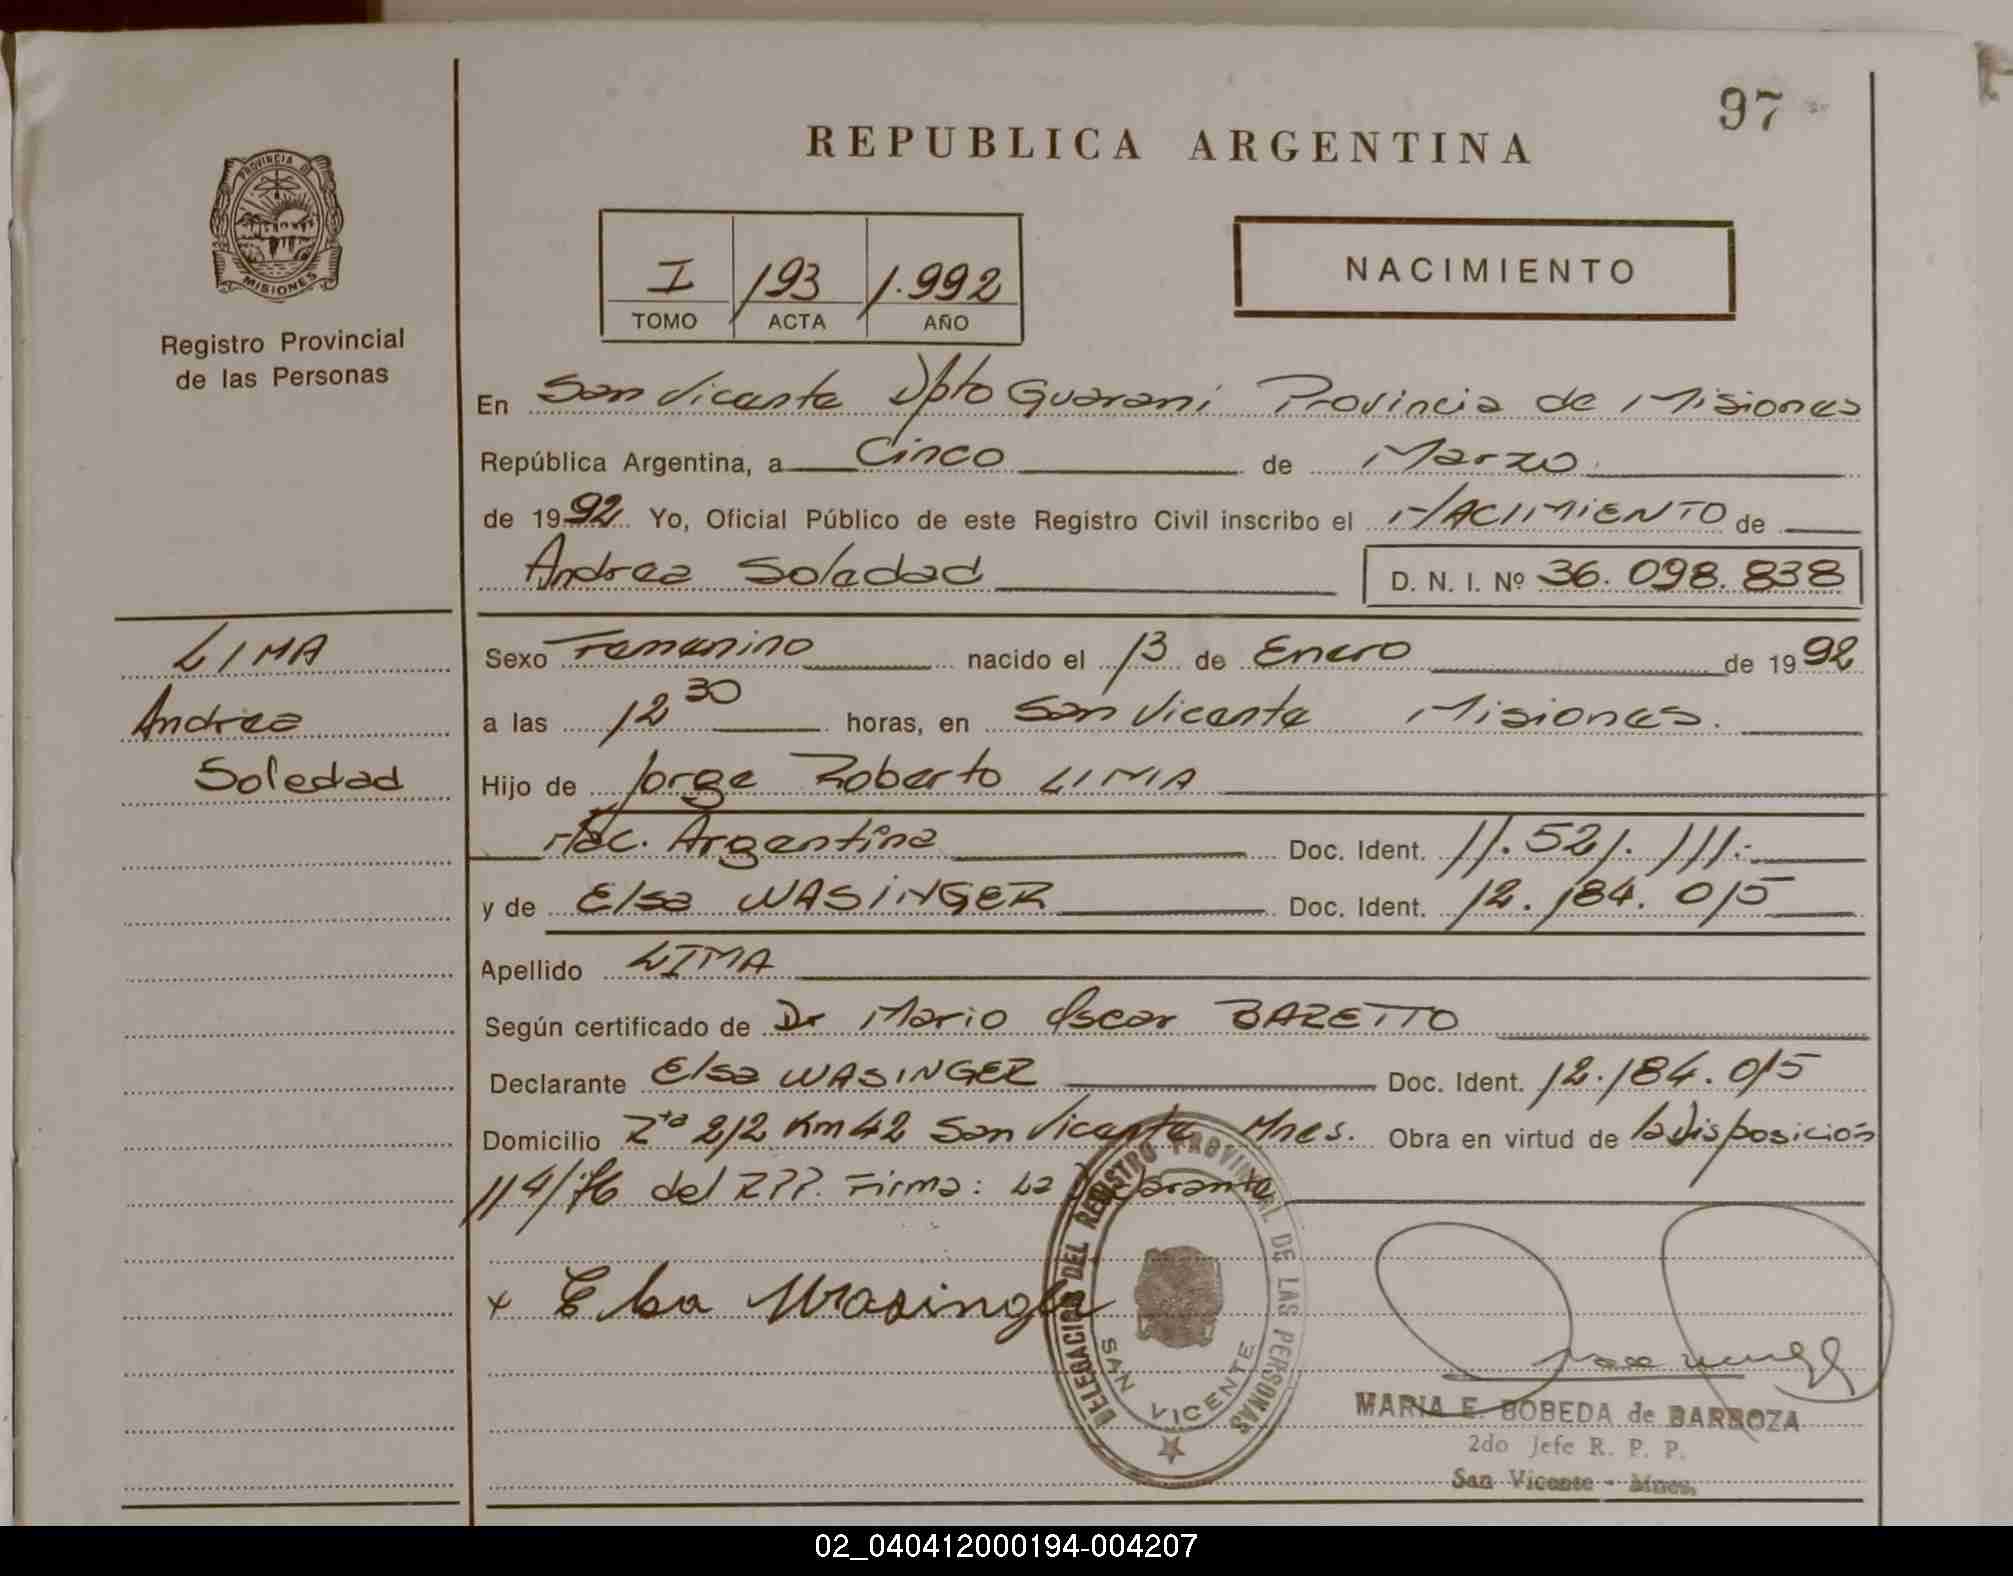 97
REPUBLICA ARGENTINA
PROVINCIA DE
MISIONES
Registro Provincial
de las Personas
I 193 1.992
TOMO ACTA AÑO
NACIMIENTO
En San Vicente Dpto Guarani Provincia de Misiones
República Argentina, a Cinco de Marzo
de 1992 Yo, Oficial Público de este Registro Civil inscribo el NACIMIENTO de
Andrea Soledad D. N. I. Nº 36.098.838
LIMA
Andrea
Soledad
Sexo Femenino nacido el 13 de Enero de 1992
a las 12 30 horas, en San Vicente Misiones.
Hijo de Jorge Roberto LIMA
Nac. Argentina Doc. Ident. 11.521.111.-
y de Elsa WASINGER Doc. Ident. 12.184.015
Apellido LIMA
Según certificado de Dr Mario Oscar BAZETTO
Declarante Elsa WASINGER Doc. Ident. 12.184.015
Domicilio Rta 212 Km 42 San Vicente Mnes. Obra en virtud de la Disposición
114/76 del RPP. Firma: La Declarante
x Elsa Wasinger
DELEGACION DEL REGISTRO PROVINCIAL DE LAS PERSONAS
SAN VICENTE
MARIA E. BOBEDA de BARBOZA
2do Jefe R. P. P.
San Vicente - Mnes.
02_040412000194-004207